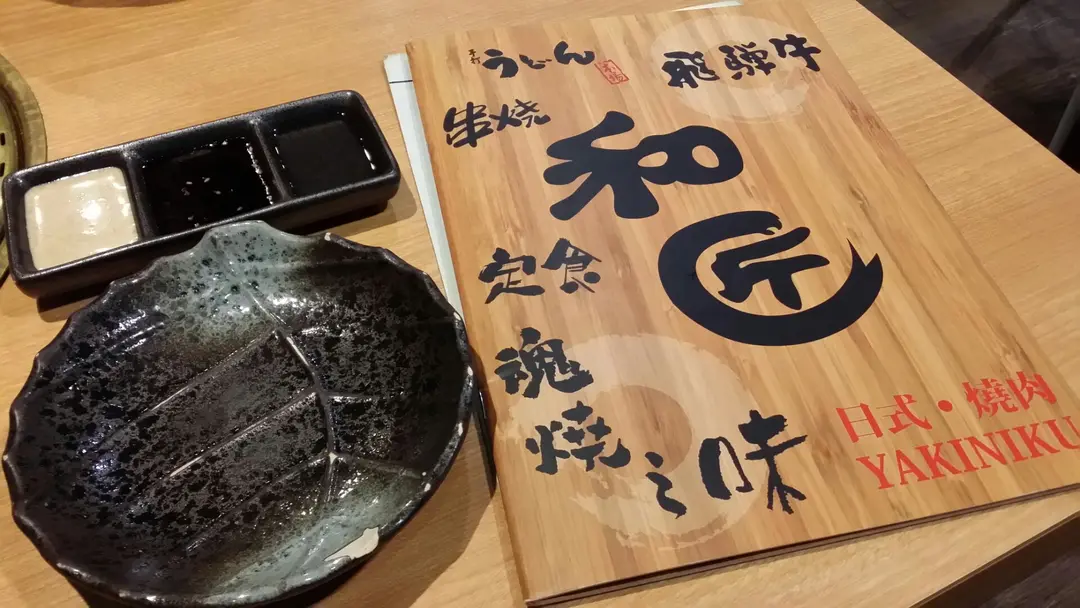 手打
うどん
飛騨牛
串焼
和
匠
定食
魂
燒
之味
日式・燒肉
YAKINIKU